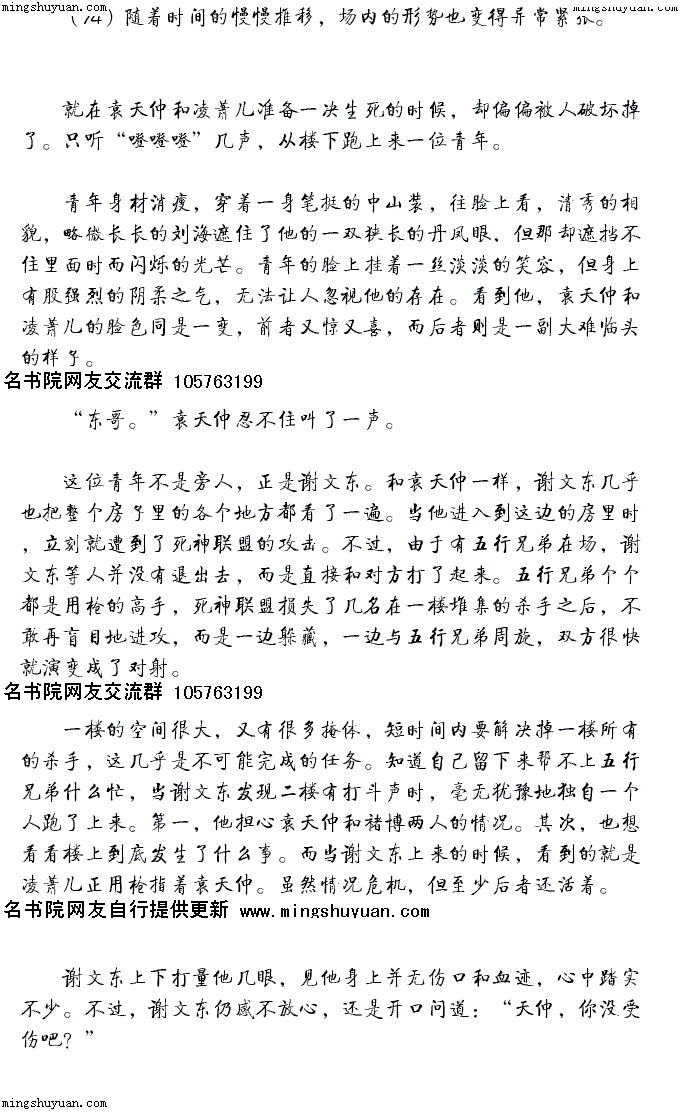 mingshuyuan.com mingshuyuan.com
（74）随着时间的慢慢推移，场内的形势也变得异常紧张。
就在袁天仲和凌菁儿准备一决生死的时候，却偏偏被人破坏掉
了。只听“噔噔噔”几声，从楼下跑上来一位青年。
青年身材消瘦，穿着一身笔挺的中山装，往脸上看，清秀的相
貌，略微长长的刘海遮住了他的一双狭长的丹凤眼，但那却遮挡不
住里面时而闪烁的光芒。青年的脸上挂着一丝淡淡的笑容，但身上
有股强烈的阴柔之气，无法让人忽视他的存在。看到他，袁天仲和
凌菁儿的脸色同是一变，前者又惊又喜，而后者则是一副大难临头
的样子。
名书院网友交流群 105763199
“东哥。”袁天仲忍不住叫了一声。
这位青年不是旁人，正是谢文东。和袁天仲一样，谢文东几乎
也把整个房子里的各个地方都看了一遍。当他进入到这边的房里时
，立刻就遭到了死神联盟的攻击。不过，由于有五行兄弟在场，谢
文东等人并没有退出去，而是直接和对方打了起来。五行兄弟个个
都是用枪的高手，死神联盟损失了几名在一楼堆集的杀手之后，不
敢再盲目地进攻，而是一边躲藏，一边与五行兄弟周旋，双方很快
就演变成了对射。
名书院网友交流群 105763199
一楼的空间很大，又有很多掩体，短时间内要解决掉一楼所有
的杀手，这几乎是不可能完成的任务。知道自己留下来帮不上五行
兄弟什么忙，当谢文东发现二楼有打斗声时，毫无犹豫地独自一个
人跑了上来。第一，他担心袁天仲和褚博两人的情况。其次，也想
看看楼上到底发生了什么事。而当谢文东上来的时候，看到的就是
凌菁儿正用枪指着袁天仲。虽然情况危机，但至少后者还活着。
名书院网友自行提供更新 www.mingshuyuan.com
谢文东上下打量他几眼，见他身上并无伤口和血迹，心中踏实
不少。不过，谢文东仍感不放心，还是开口问道：“天仲，你没受
伤吧？”
mingshuyuan.com mingshuyuan.com